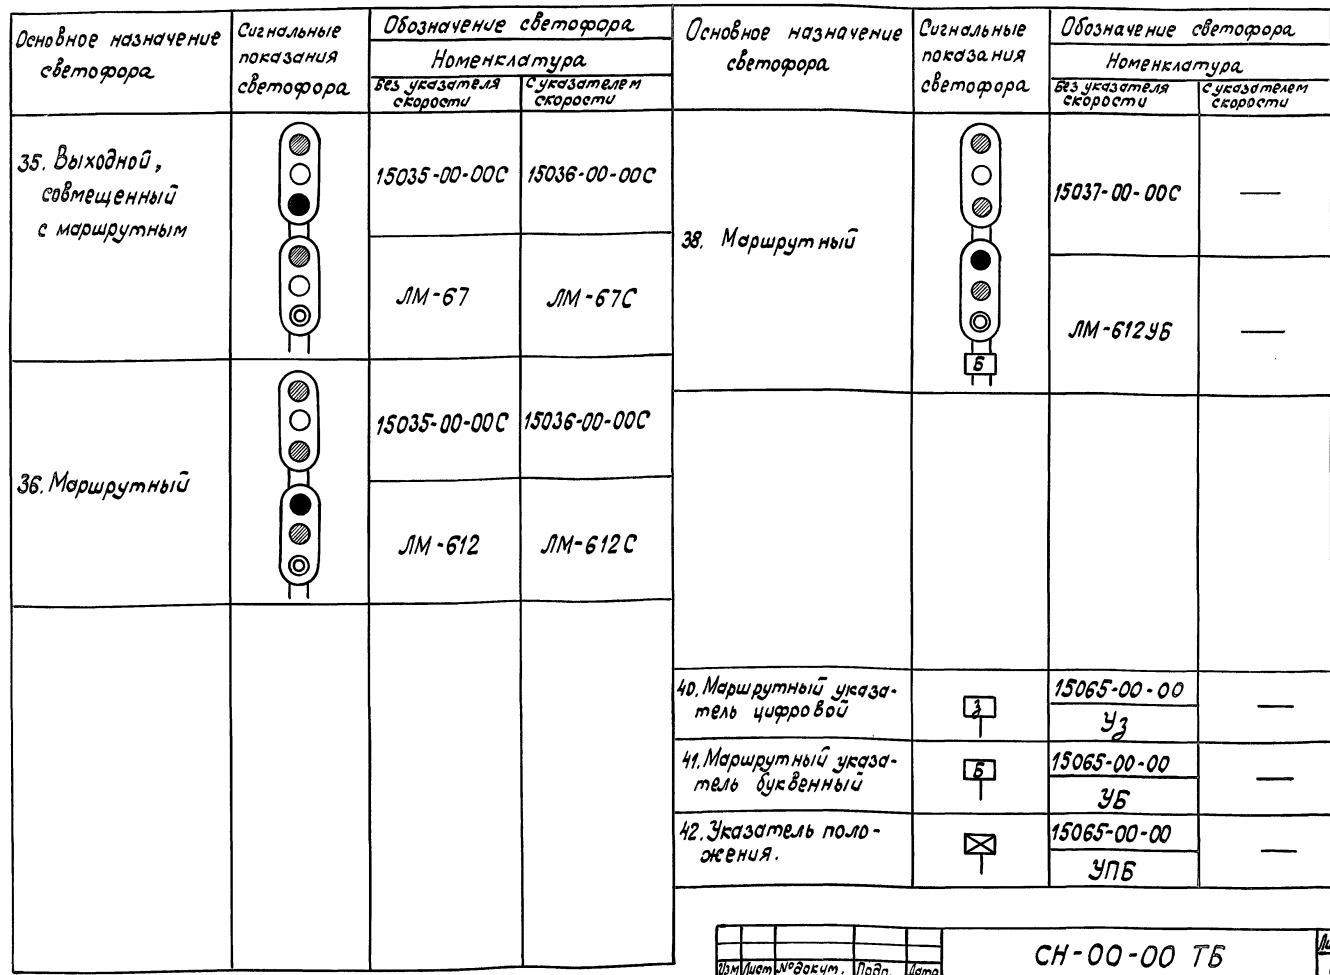 Основное назначение
светофора
Сигнальные
показания
светофора
Обозначение светофора
Номенклатура
Без указателя
скорости
С указателем
скорости
35. Выходной,
совмещенный
с маршрутным
15035-00-00С
15036-00-00С
ЛМ-67
ЛМ-67С
36. Маршрутный
15035-00-00С
15036-00-00С
ЛМ-612
ЛМ-612С
Основное назначение
светофора
Сигнальные
показания
светофора
Обозначение светофора
Номенклатура
Без указателя
скорости
С указателем
скорости
38. Маршрутный
Б
15037-00-00С
—
ЛМ-612УБ
—
40. Маршрутный указа-
тель цифровой
З
15065-00-00
УЗ
—
41. Маршрутный указа-
тель буквенный
Б
15065-00-00
УБ
—
42. Указатель поло-
жения.
15065-00-00
УПБ
—
СН-00-00 ТБ
Изм Лист № докум. Подп. Дата